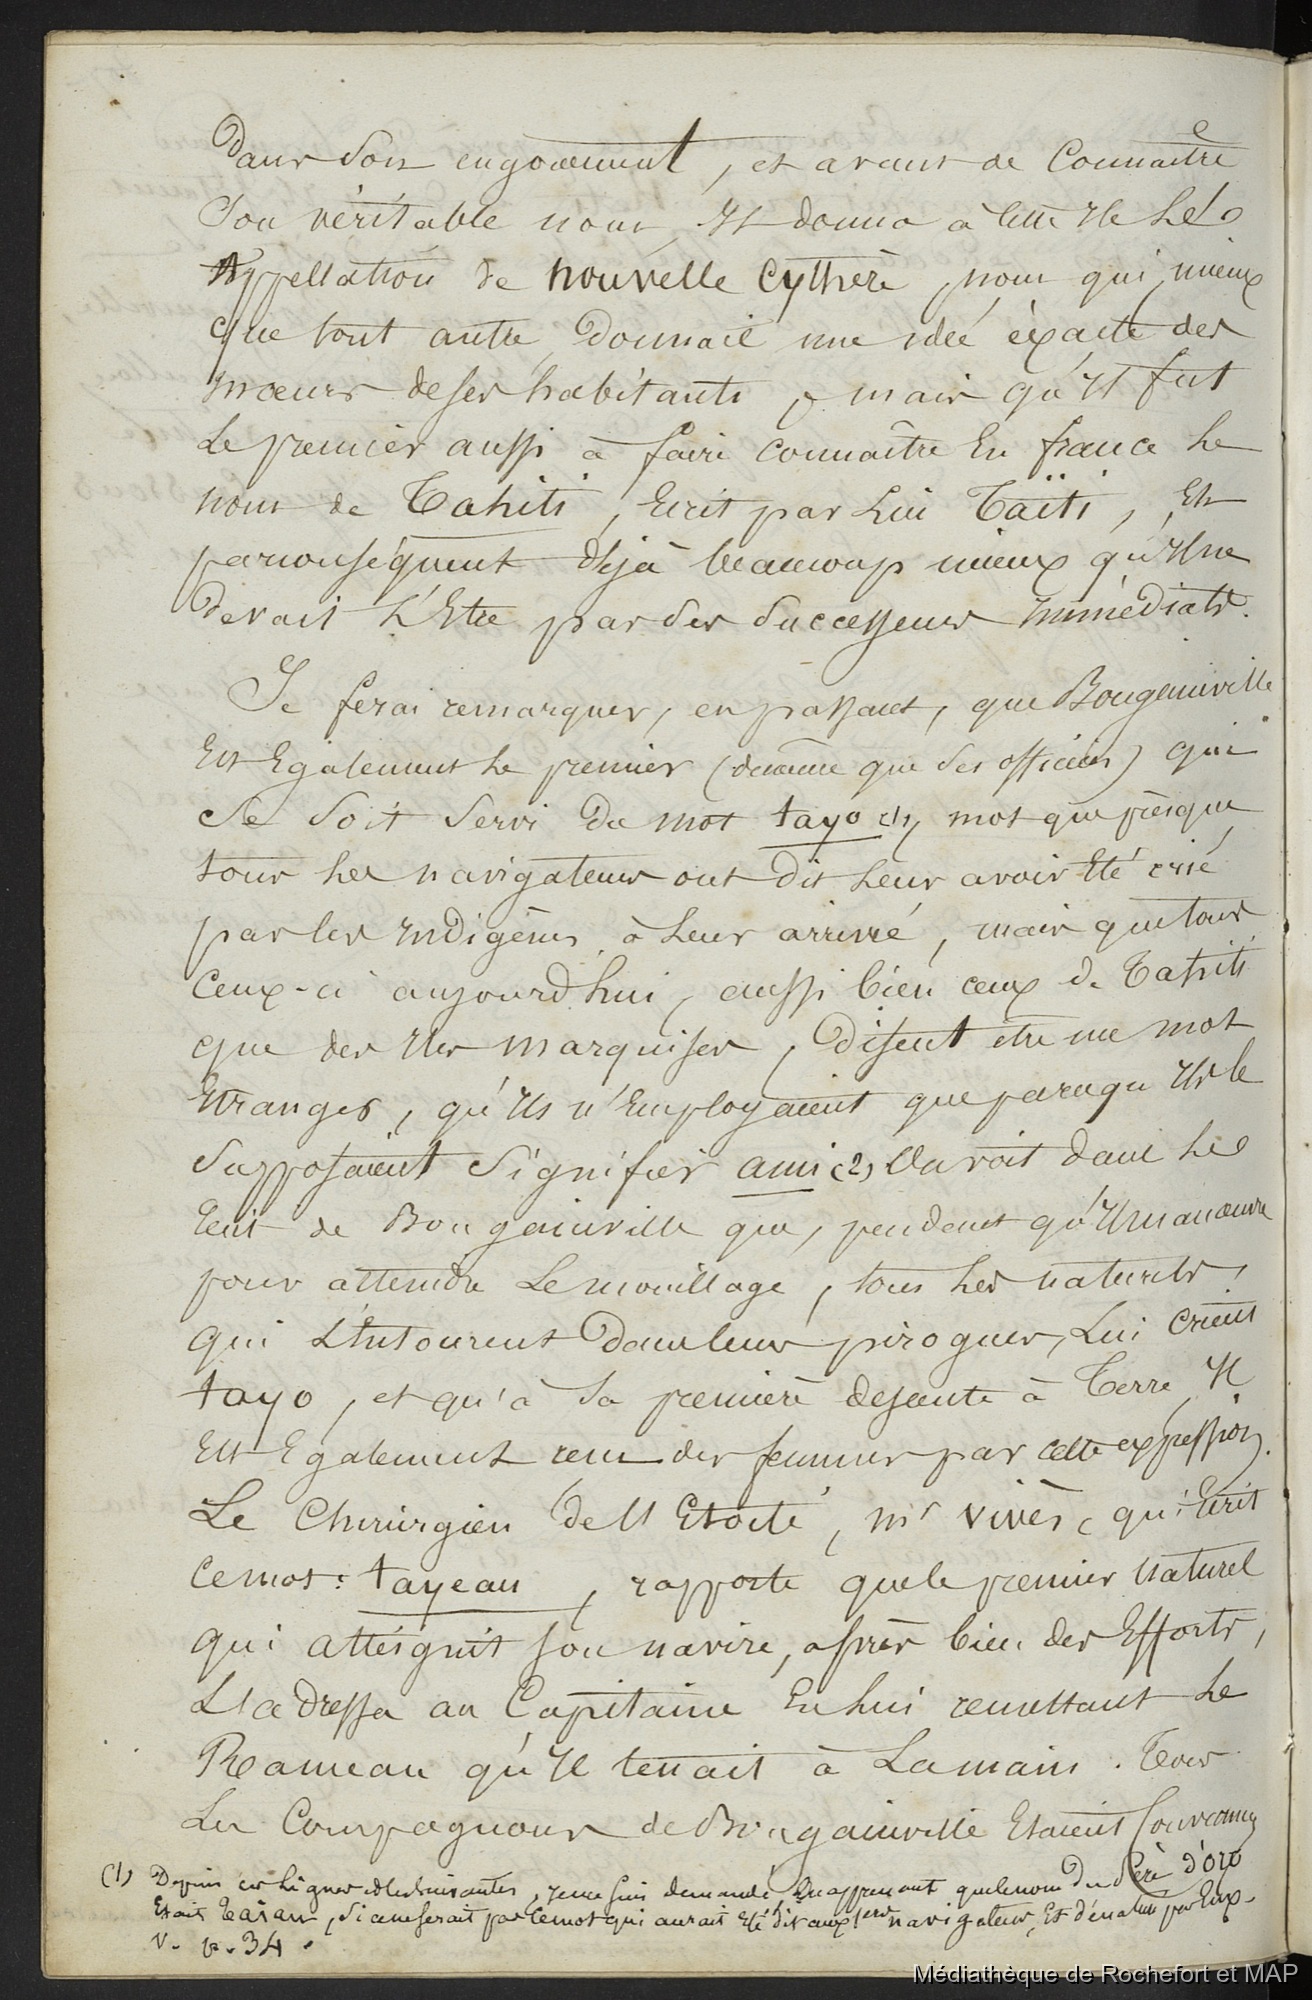 Dans son engouement, et avant de Connaitre
Son véritable nom, Il donna à cette Ile Le
Appellation de nouvelle Cythère, nom qui, mieux
que tout autre, Donnait une idée éxacte des
mœurs de ses habitants, mais qu'Il fut
Le premier aussi à faire connaître En france Le
nom de Tahiti, Ecrit par Lui Taïti, Et
par conséquent déjà beaucoup mieux qu'Il ne
devait L'Etre par ses Successeurs Immédiats.
Je ferai remarquer, en passant, que Bougainville
Est Egalement Le premier (de même que ses officiers) qui
Se Soit Servi du mot tayo (1), mot que presque
tous Les navigateurs ont dit Leur avoir Eté crié
par les Indigènes à Leur arrivé, mais que tous
Ceux-ci aujourd'hui, aussi bien ceux de Tahiti
que des Iles marquises, Disent être un mot
Etranger, qu'Ils n'Employaient que parcequ'Ils le
Supposaient Signifier ami (2) On voit dans Le
Récit de Bougainville que, pendant qu'Il manœuvre
pour atteindre Le mouillage, tous Les naturels,
qui L'Entourent dans leurs pirogues, Lui crient
tayo, et qu'à Sa première descente à Terre, Il
Est Egalement reçu des femmes par cette expression.
Le Chirurgien de l'Etoile, mr vivès, qui Ecrit
Ce mot : tayeau, rapporte que le premier Naturel
qui atteignit Son navire, après bien des Efforts,
L'adressa au Capitaine En Lui remettant Le
Rameau qu'Il tenait à La main. Tous
Les Compagnons de Bougainville Etaient Convaincus
(1) Depuis ces Lignes et les suivantes, je me suis demandé, En apprenant que le nom Du Père d'Oro
Etait Taïau, Si ce ne serait pas Ce mot qui aurait Eté dit aux 1ers navigateurs, Et dénaturé par Eux.
V. p. 34.
Médiathèque de Rochefort et MAP